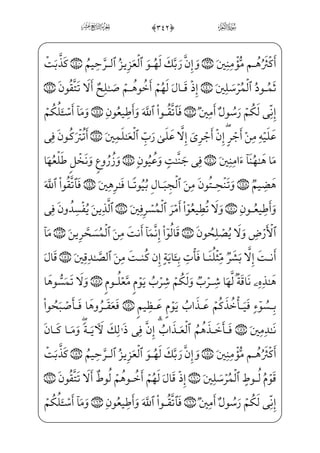 سُورَةُ الشُّعَرَاءِ ﴿٣٤٢﴾ الجُزْءُ التَّاسِعَ عَشَرَ
أَكْثَرُهُم مُّؤْمِنِينَ ١٣٩ وَإِنَّ رَبَّكَ لَهُوَ ٱلْعَزِيزُ ٱلرَّحِيمُ ١٤٠ كَذَّبَتْ
ثَمُودُ ٱلْمُرْسَلِينَ ١٤١ إِذْ قَالَ لَهُمْ أَخُوهُمْ صَٰلِحٌ أَلَا تَتَّقُونَ ١٤٢
إِنِّى لَكُمْ رَسُولٌ أَمِينٌ ١٤٣ فَٱتَّقُوا۟ ٱللَّهَ وَأَطِيعُونِ ١٤٤ وَمَآ أَسْـَٔلُكُمْ
عَلَيْهِ مِنْ أَجْرٍ ۖ إِنْ أَجْرِىَ إِلَّا عَلَىٰ رَبِّ ٱلْعَٰلَمِينَ ١٤٥ أَتُتْرَكُونَ فِى
مَا هَٰهُنَآ ءَامِنِينَ ١٤٦ فِى جَنَّٰتٍ وَعُيُونٍ ١٤٧ وَزُرُوعٍ وَنَخْلٍ طَلْعُهَا
هَضِيمٌ ١٤٨ وَتَنْحِتُونَ مِنَ ٱلْجِبَالِ بُيُوتًا فَٰرِهِينَ ١٤٩ فَٱتَّقُوا۟ ٱللَّهَ
وَأَطِيعُونِ ١٥٠ وَلَا تُطِيعُوٓا۟ أَمْرَ ٱلْمُسْرِفِينَ ١٥١ ٱلَّذِينَ يُفْسِدُونَ فِى
ٱلْأَرْضِ وَلَا يُصْلِحُونَ ١٥٢ قَالُوٓا۟ إِنَّمَآ أَنتَ مِنَ ٱلْمُسَحَّرِينَ ١٥٣ مَآ
أَنتَ إِلَّا بَشَرٌ مِّثْلُنَا فَأْتِ بِـَٔايَةٍ إِن كُنتَ مِنَ ٱلصَّٰدِقِينَ ١٥٤ قَالَ
هَٰذِهِۦ نَاقَةٌ لَّهَا شِرْبٌ وَلَكُمْ شِرْبُ يَوْمٍ مَّعْلُومٍ ١٥٥ وَلَا تَمَسُّوهَا
بِسُوٓءٍ فَيَأْخُذَكُمْ عَذَابُ يَوْمٍ عَظِيمٍ ١٥٦ فَعَقَرُوهَا فَأَصْبَحُوا۟
نَٰدِمِينَ ١٥٧ فَأَخَذَهُمُ ٱلْعَذَابُ ۗ إِنَّ فِى ذَٰلِكَ لَـَٔايَةً ۖ وَمَا كَانَ
أَكْثَرُهُم مُّؤْمِنِينَ ١٥٨ وَإِنَّ رَبَّكَ لَهُوَ ٱلْعَزِيزُ ٱلرَّحِيمُ ١٥٩ كَذَّبَتْ
قَوْمُ لُوطٍ ٱلْمُرْسَلِينَ ١٦٠ إِذْ قَالَ لَهُمْ أَخُوهُمْ لُوطٌ أَلَا تَتَّقُونَ ١٦١
إِنِّى لَكُمْ رَسُولٌ أَمِينٌ ١٦٢ فَٱتَّقُوا۟ ٱللَّهَ وَأَطِيعُونِ ١٦٣ وَمَآ أَسْـَٔلُكُمْ